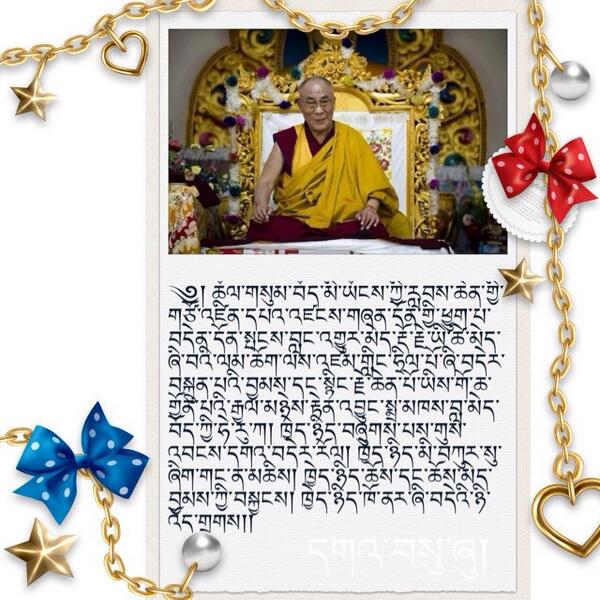 ༄། ཚོལ་གསུམ་བོད་མི་ཡོངས་ཀྱི་རླབས་ཆེན་གྱི་
གཙོ་འཛིན་དཔའ་འཛངས་གཞན་དོན་གྱི་ཕུག་པ་
བདེན་དོན་སྤངས་བླང་འགྱུར་མེད་རྡོ་རྗེ་ཡི་ཚོ་མེད་
ཞི་བའི་ལམ་ཆོག་ལས་འཛམ་གླིང་ཧྲིལ་པོ་ཞི་བདེར་
བསྐྲུན་པའི་བྱམས་དང་སྙིང་རྗེ་ཆེན་པོ་ཡིས་གོ་ཆ་
གྱོན་པའི་རྒྱལ་མཉེས་རྟེན་འབྱུང་སྨྲ་མཁས་བླ་མེད་
བོད་ཀྱི་ཧེ་རུ་ཀ། ཁྱེད་ཉིད་བཞུགས་པས་གུས་
འབངས་དགའ་བདེར་རོལ། ཁྱེད་ཉིད་མི་བཀུར་སུ་
ཞིག་གང་ན་མཆིས། ཁྱེད་ཉིད་ཆོས་དང་ཆོས་མེད་
བྱམས་ཀྱི་བསྐྱངས། ཁྱེད་ཉིད་ཁོ་ནར་ཞི་བདེའི་ཉི་
འོད་གྲགས།།
དགའ་བསུ་ཞུ།